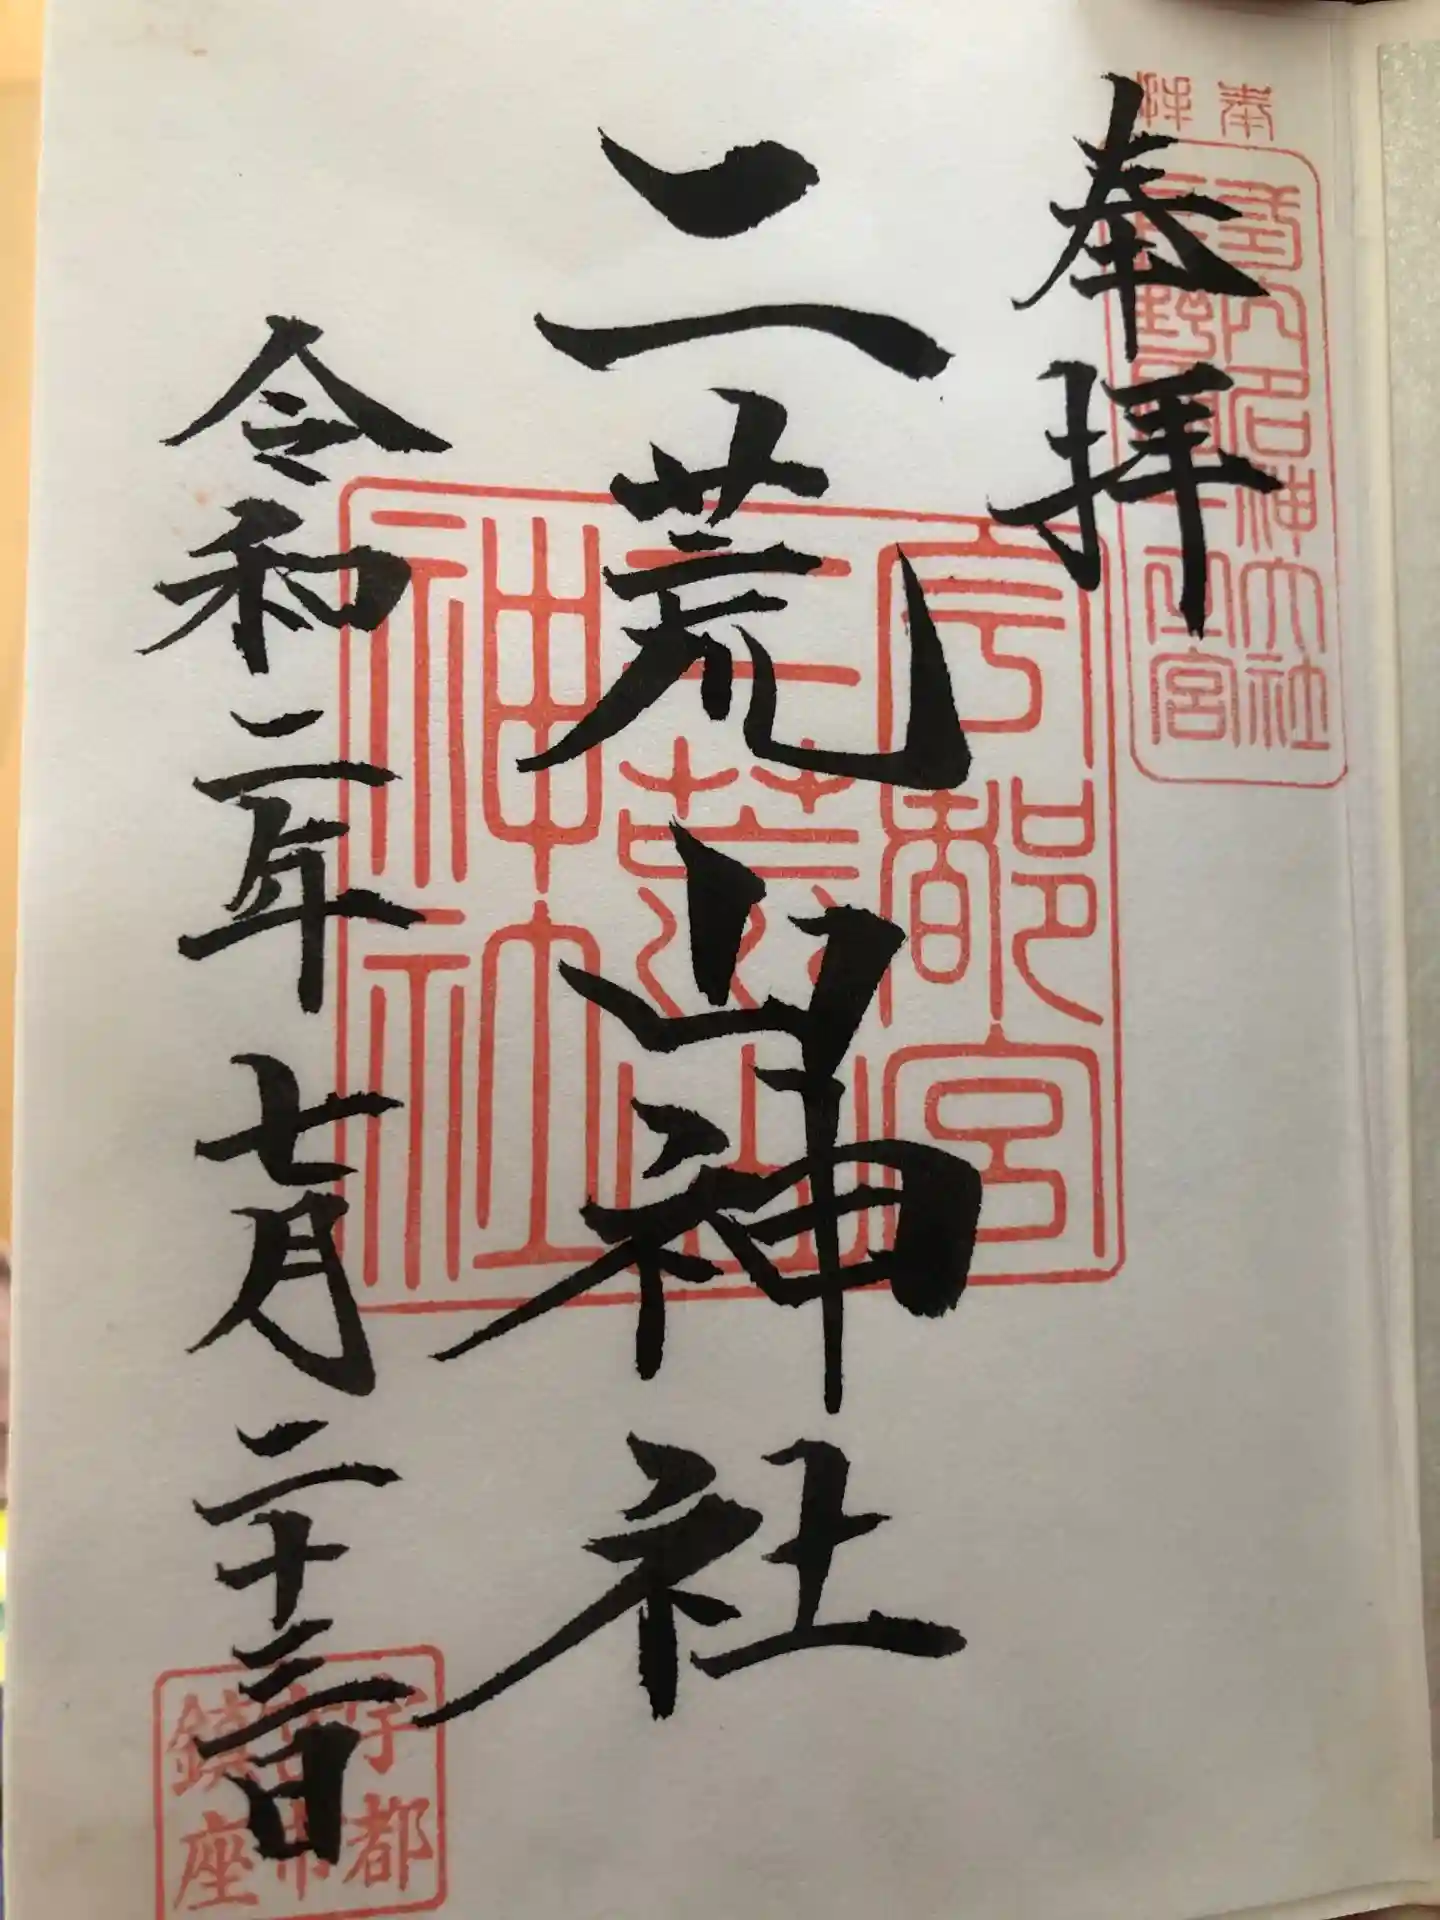 奉拝
式内名神大社
下野國一之宮
奉拝
二荒山神社
宇都宮
二荒山
神社
令和二年七月二十三日
宇都
宮市
鎮座